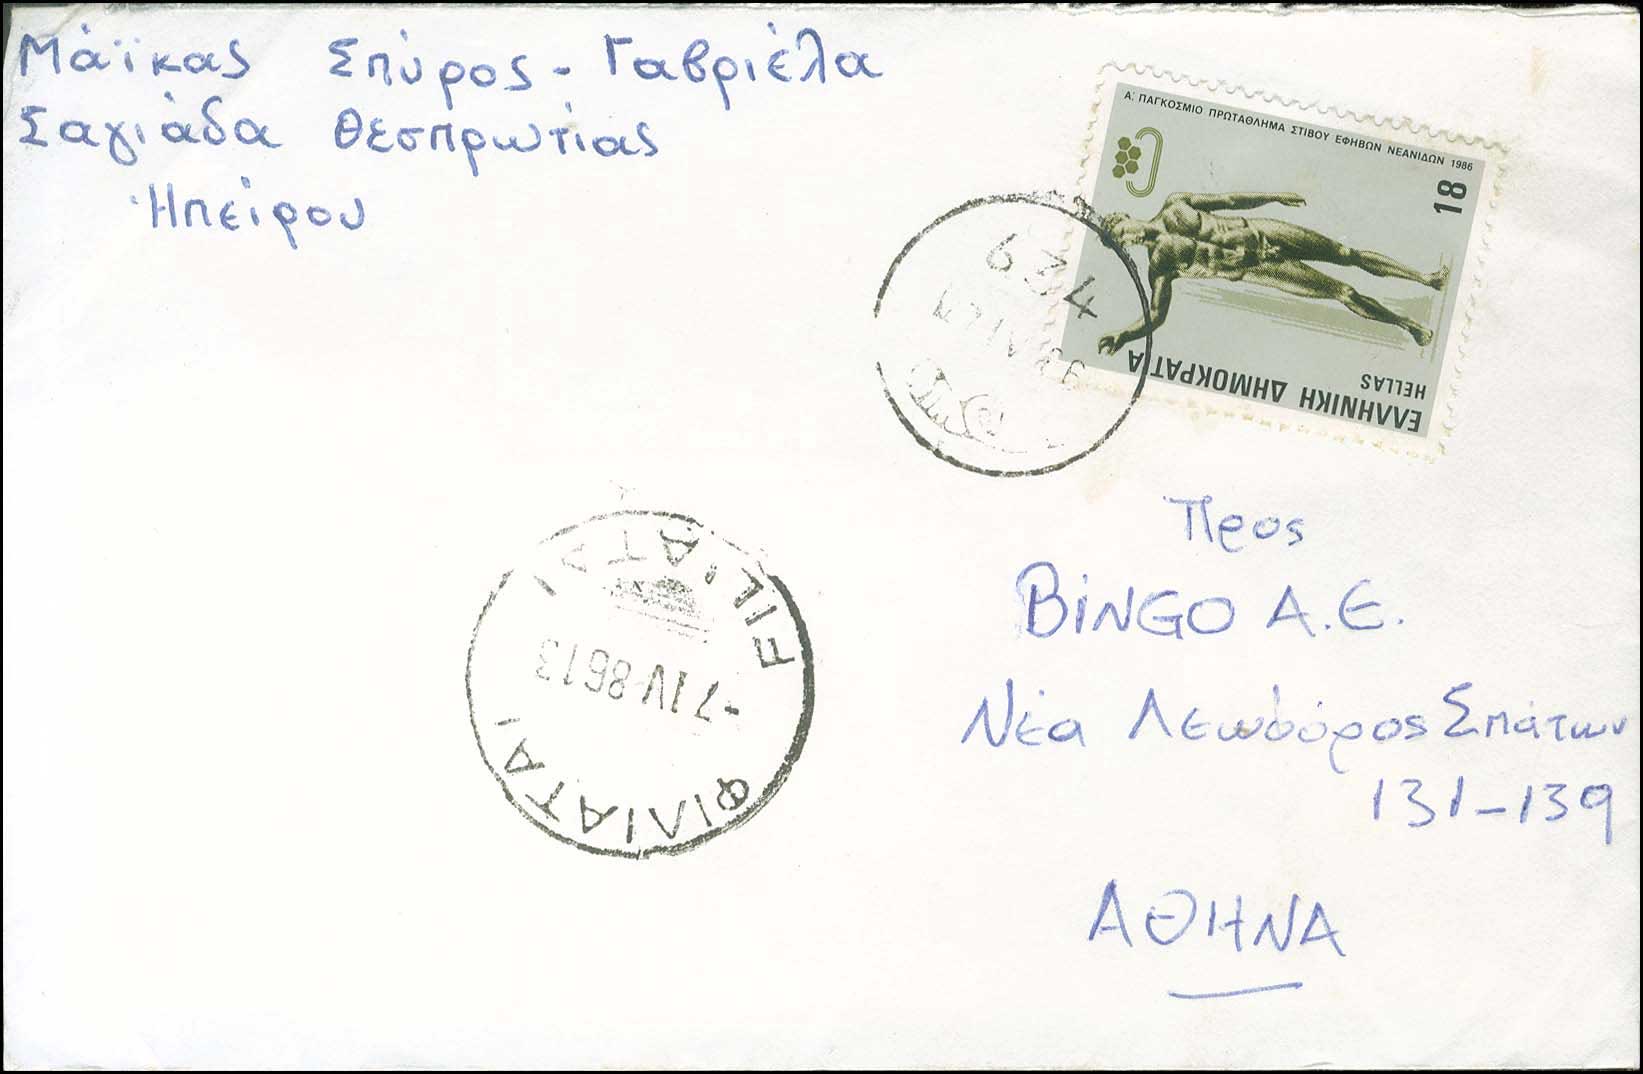 Μάϊκας Σπύρος - Γαβριέλα
Σαγιάδα Θεσπρωτίας
Ηπείρου
Α΄ ΠΑΓΚΟΣΜΙΟ ΠΡΩΤΑΘΛΗΜΑ ΣΤΙΒΟΥ ΕΦΗΒΩΝ ΝΕΑΝΙΔΩΝ 1986
18
ΕΛΛΗΝΙΚΗ ΔΗΜΟΚΡΑΤΙΑ
HELLAS
634
FILIATAI
-7 IV-86 13
ΦΙΛΙΑΤΑΙ
Προς
BINGO A.E.
Νέα Λεωφόρος Σπάτων
131-139
ΑΘΗΝΑ